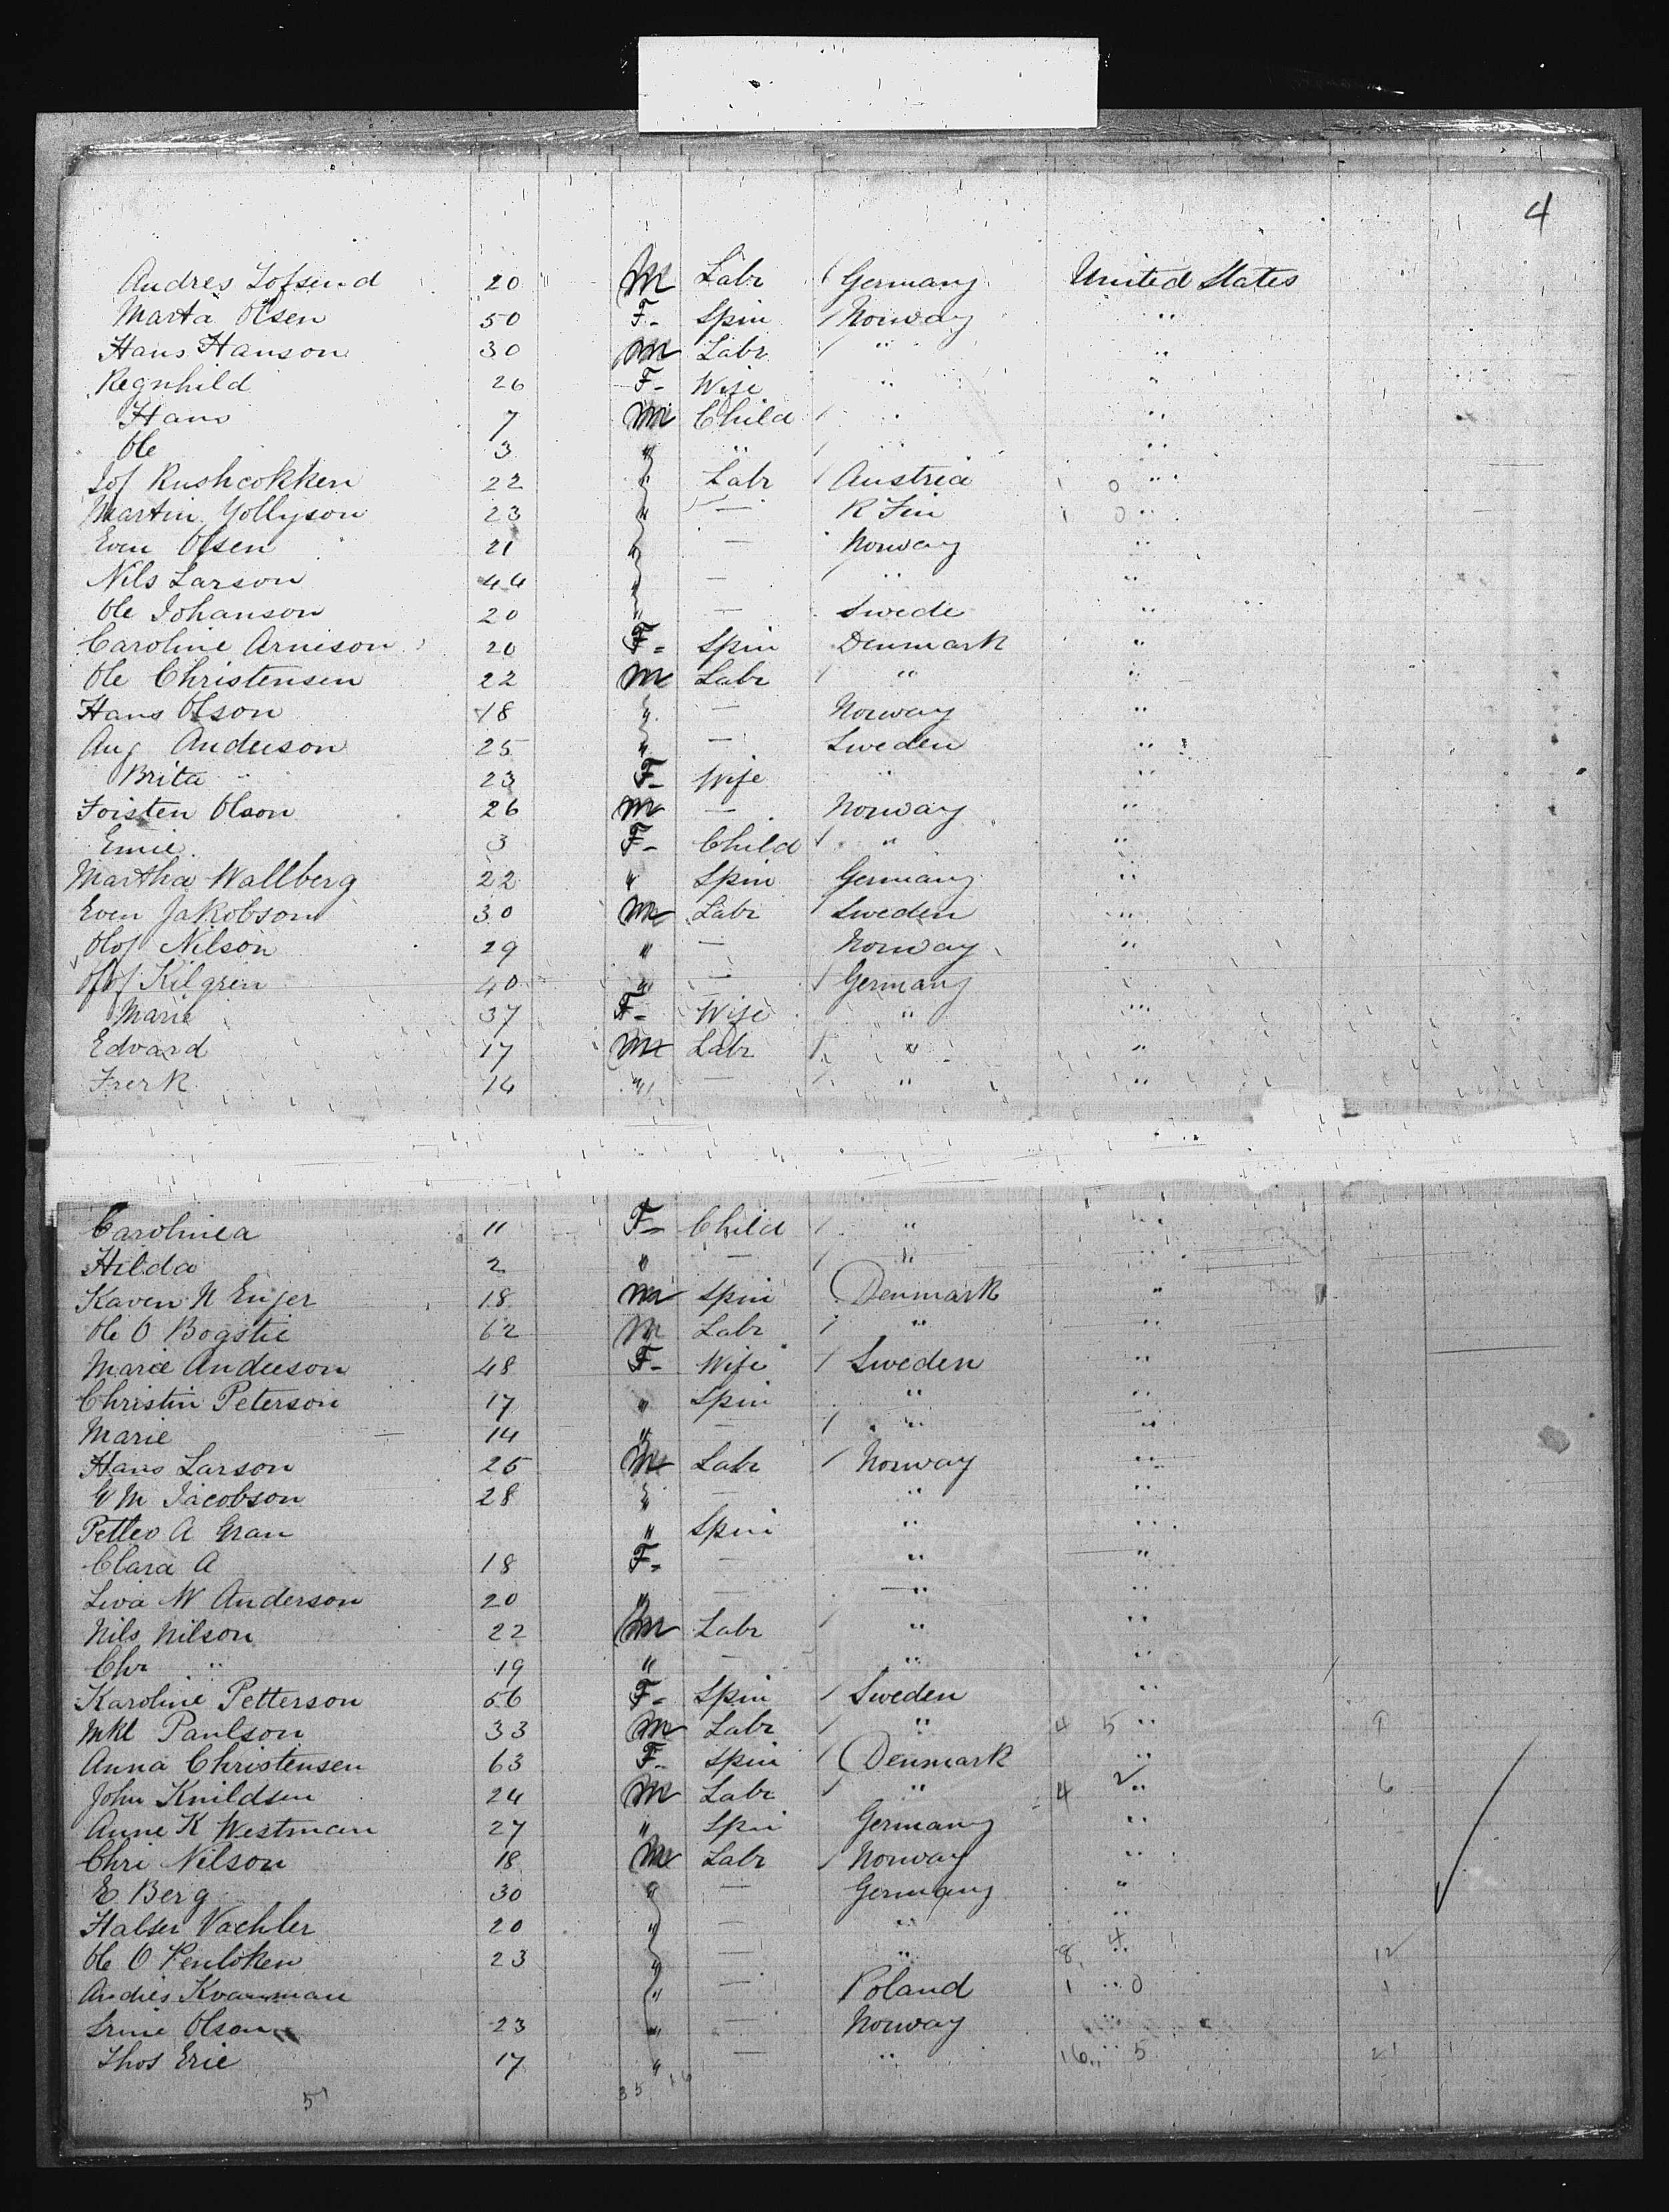 4
Andres Lofsend 20 " M Labr / Germany United States
Marta Olsen 50 F- Spin / Norway "
Hans Hanson 30 M Labr / " "
Regnhild 26 F- Wife " "
Hans 7 M Child / " "
Ole 3 " " / " "
Jof Rushcokken 22 " Labr / Austria 1 0 "
Martin Yollyson 23 " — R Fin 1 0 "
Even Olsen 21 " — Norway "
Nils Larson 44 " — / " "
Ole Johanson 20 " — Swede "
Caroline Arneson 20 F- Spin Denmark "
Ole Christensen 22 M Labr / " "
Hans Olson 18 " — Norway "
Aug Anderson 25 " — Sweden "
Brita " 23 F- Wife " "
Torsten Olson 26 M — Norway "
Emie 3 F- Child / " "
Martha Wallberg 22 " Spin Germany "
Even Jakobson 30 M Labr / Sweden "
Olof Nilson 29 " — Norway "
Olof Kilgren 40 " — / Germany "
Marie 37 F- Wife " "
Edvard 17 M Labr / " "
Frerk 14 " — / " "
Carolinea 11 F- Child / " "
Hilda 2 " — / " "
Karen N Enjer 18 M Spin Denmark "
Ole O Bogstie 62 M Labr / " "
Marie Anderson 48 F- Wife / Sweden "
Christin Peterson 17 " Spin " "
Marie — 14 " — / " "
Hans Larson 25 M Labr / Norway "
G M Jacobson 28 " — " "
Petter A Gran " Spin " "
Clara A 18 F- — " "
Liva W Anderson 20 " — " "
Nils Nilson 22 M Labr / " "
Chr " 19 " — " "
Karoline Petterson 56 F- Spin / Sweden "
Mkl Paulson 33 M Labr / " 4 5 " 9
Anna Christensen 63 F- Spin / Denmark "
John Knildsen 24 M Labr / " 4 2 " 6
Anne K Westman 27 " Spin Germany "
Chri Nilson 18 M Labr / Norway "
E Berg 30 " — Germany "
Halser Vachler 20 " — " "
Ole O Penloken 23 " — " 8 4 " 12
Andies Kvamman " — Poland 1 " 0 1
Srine Olson 23 " — Norway "
Thos Erie 17 " — " 16 " 5 21
51 35 16